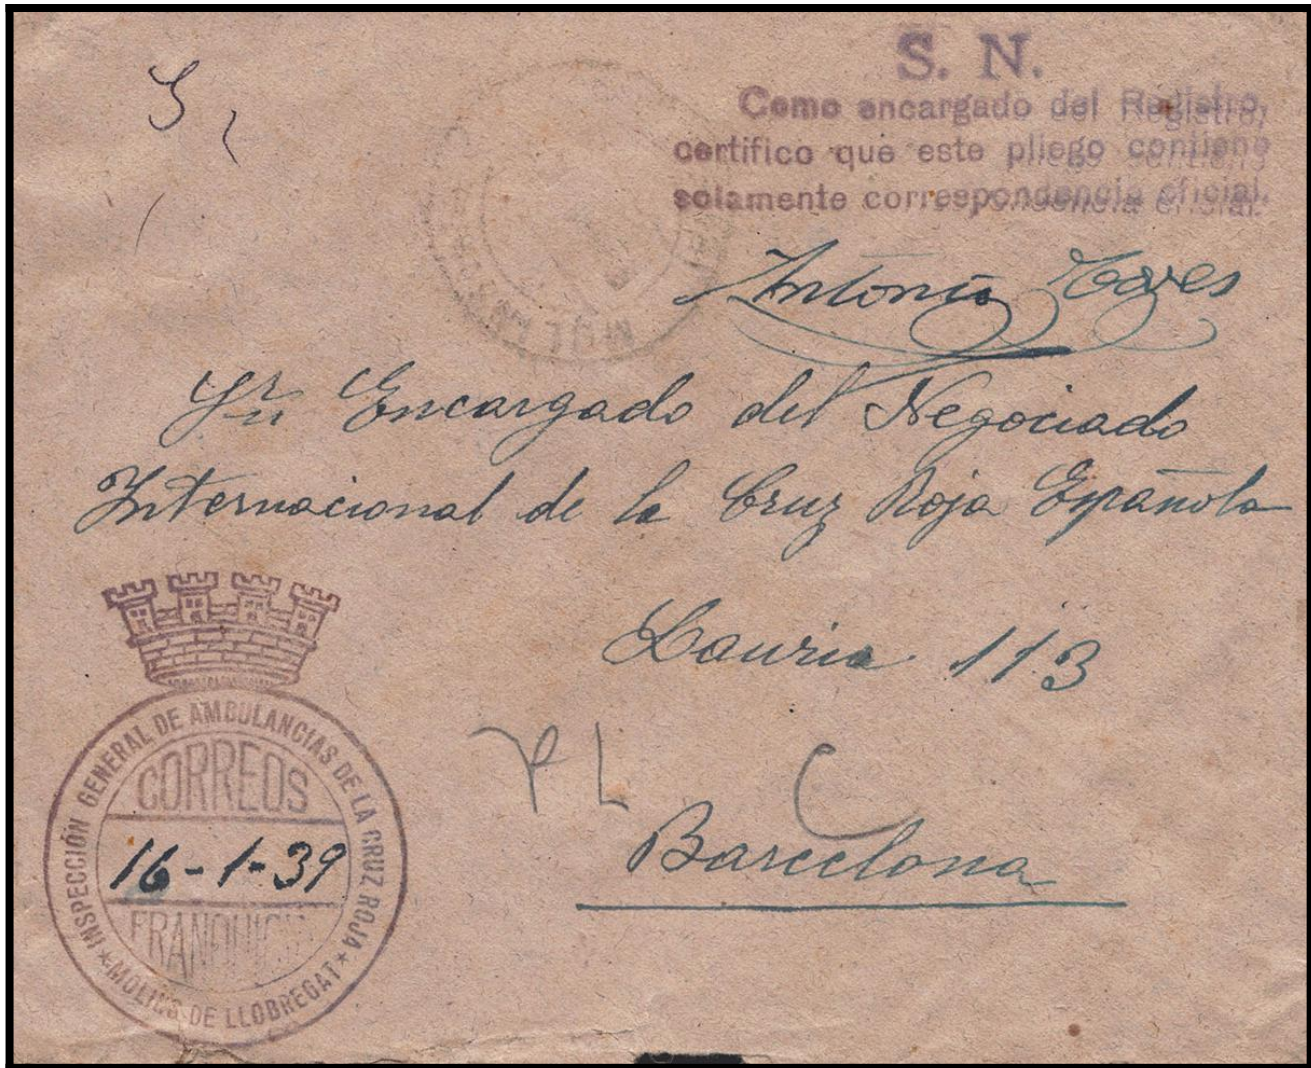 S. N.
Como encargado del Registro,
certifico que este pliego contiene
solamente correspondencia oficial.
Antonio
Sr Encargado del Negociado
Internacional de la Cruz Roja Española
Lauria 113
Barcelona
INSPECCIÓN GENERAL DE AMBULANCIAS DE LA CRUZ ROJA
CORREOS
16-1-39
FRANQUICIA
* MOLINS DE LLOBREGAT *